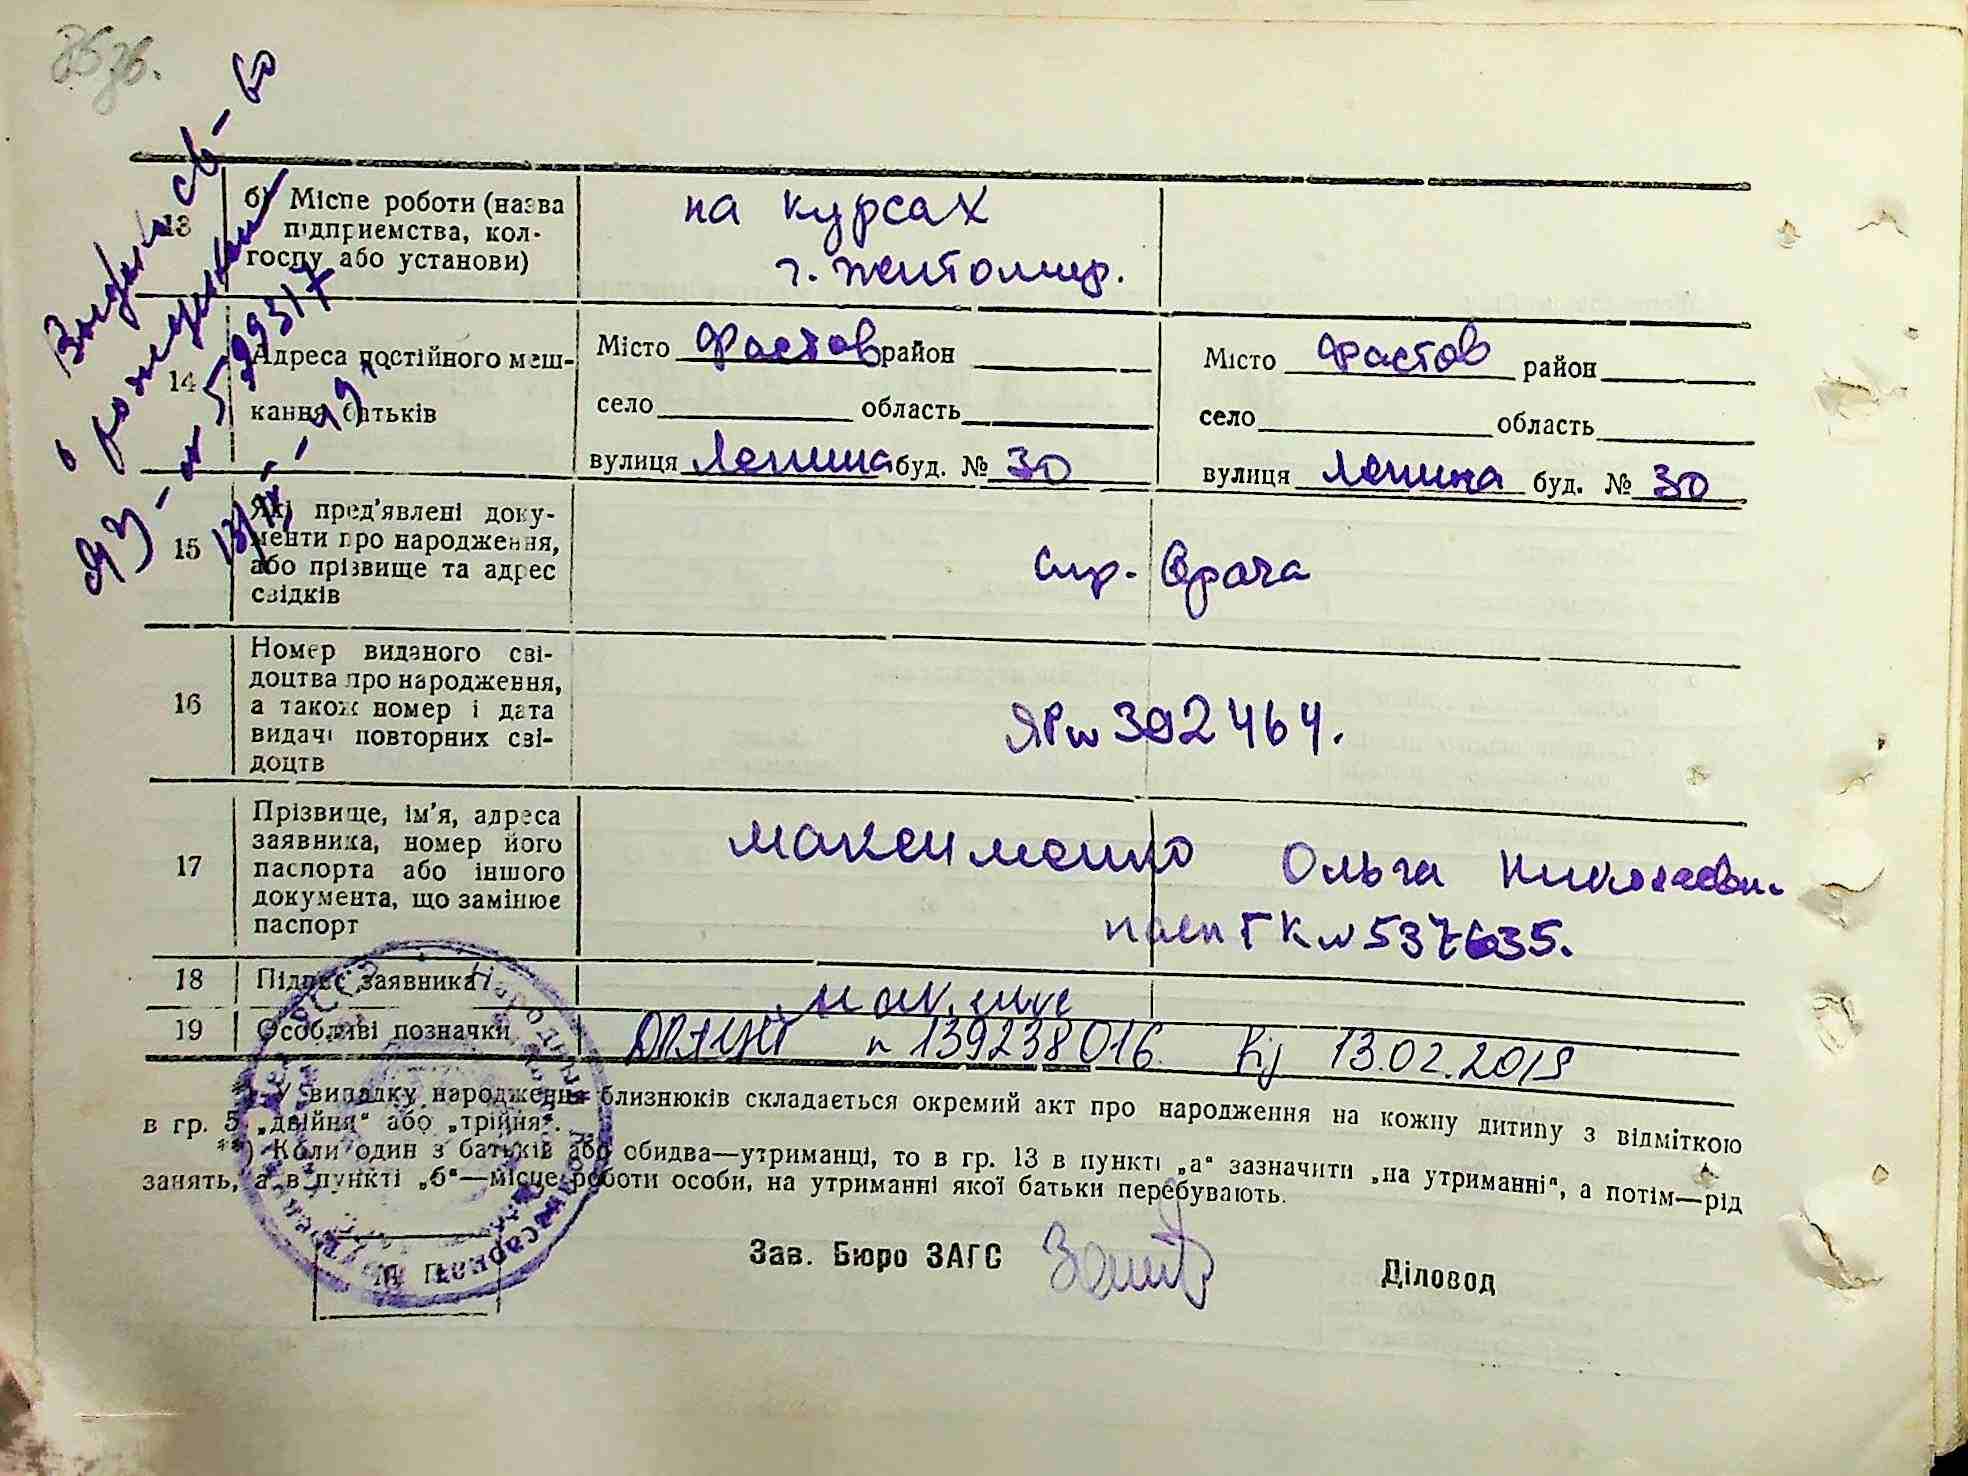 Выдано св-во
о рождении
ЯЗ-н 529317
13
б) Місце роботи (назва
підприємства, кол-
госпу або установи)
на курсах
г. Житомир.
14
Адреса постійного меш-
кання батьків
Місто Фастов район
село область
вулиця Ленина буд. № 30
Місто Фастов район
село область
вулиця Ленина буд. № 30
15
Які пред'явлені доку-
менти про народження,
або прізвище та адрес
свідків
спр. врача
16
Номер виданого сві-
доцтва про народження,
а також номер і дата
видачі повторних сві-
доцтв
ЯР № 392464.
17
Прізвище, ім'я, адреса
заявника, номер його
паспорта або іншого
документа, що замінює
паспорт
Максименко Ольга Николаевн.
пасп ГК № 537635.
18
Підпис заявника
19
Особливі позначки
ДРАЦСГ n 139238016. 13.02.2019
*) У випадку народження близнюків складається окремий акт про народження на кожну дитину з відміткою
в гр. 5 „двійня“ або „трійня“.
**) Коли один з батьків або обидва—утриманці, то в гр. 13 в пункті „а“ зазначити „на утриманні“, а потім—рід
занять, а в пункті „б“—місце роботи особи, на утриманні якої батьки перебувають.
Зав. Бюро ЗАГС
Діловод
М П